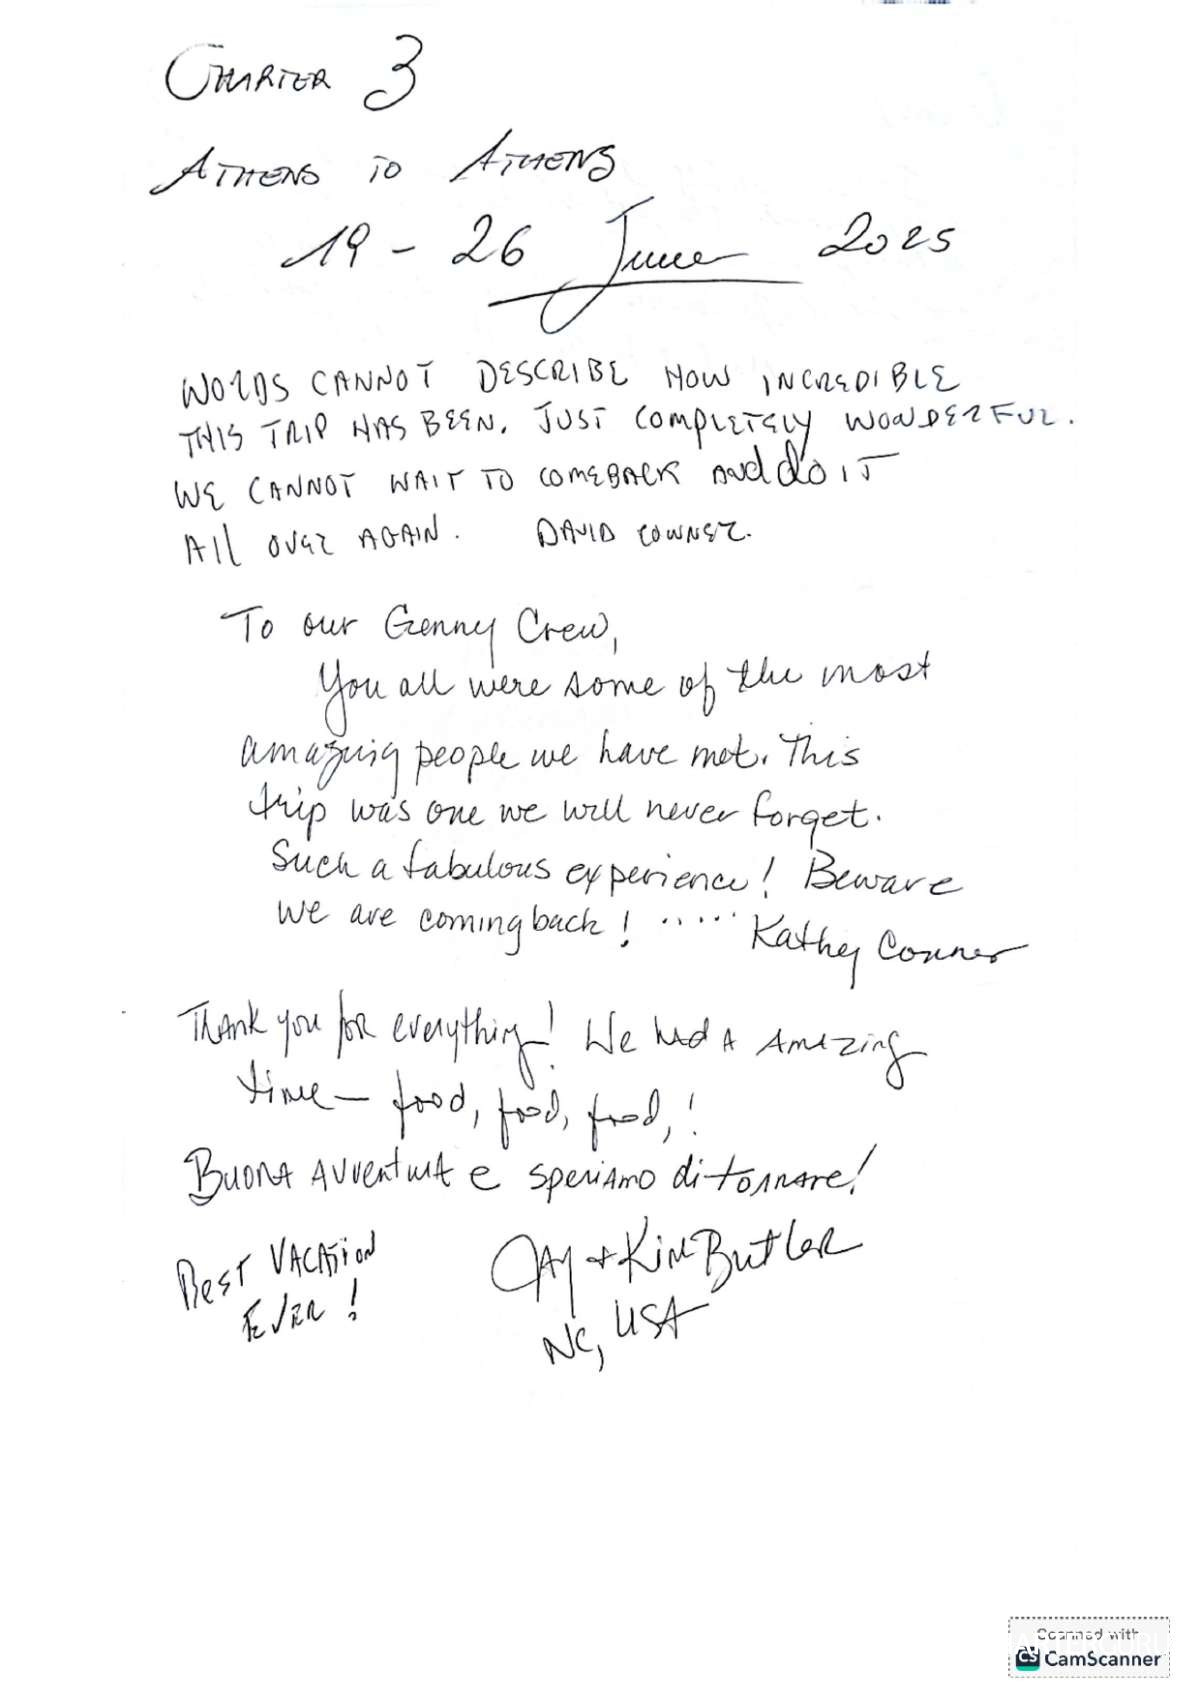 CHARTER 3
ATHENS TO ATHENS
19 - 26 June 2025
WORDS CANNOT DESCRIBE HOW INCREDIBLE
THIS TRIP HAS BEEN. JUST COMPLETELY WONDERFUL.
WE CANNOT WAIT TO COMEBACK AND do IT
All OVER AGAIN. DAVID CONNER.
To our Genny Crew,
You all were some of the most
amazing people we have met. This
trip was one we will never forget.
Such a fabulous experience! Beware
we are coming back! ..... Kathey Conner
Thank you for everything! We had A Amazing
time — food, food, food,!
Buona avventura e speriamo di tornare!
Best Vacation
Ever!
Jay + Kim Butler
NC, USA
Scanned with
CS CamScanner